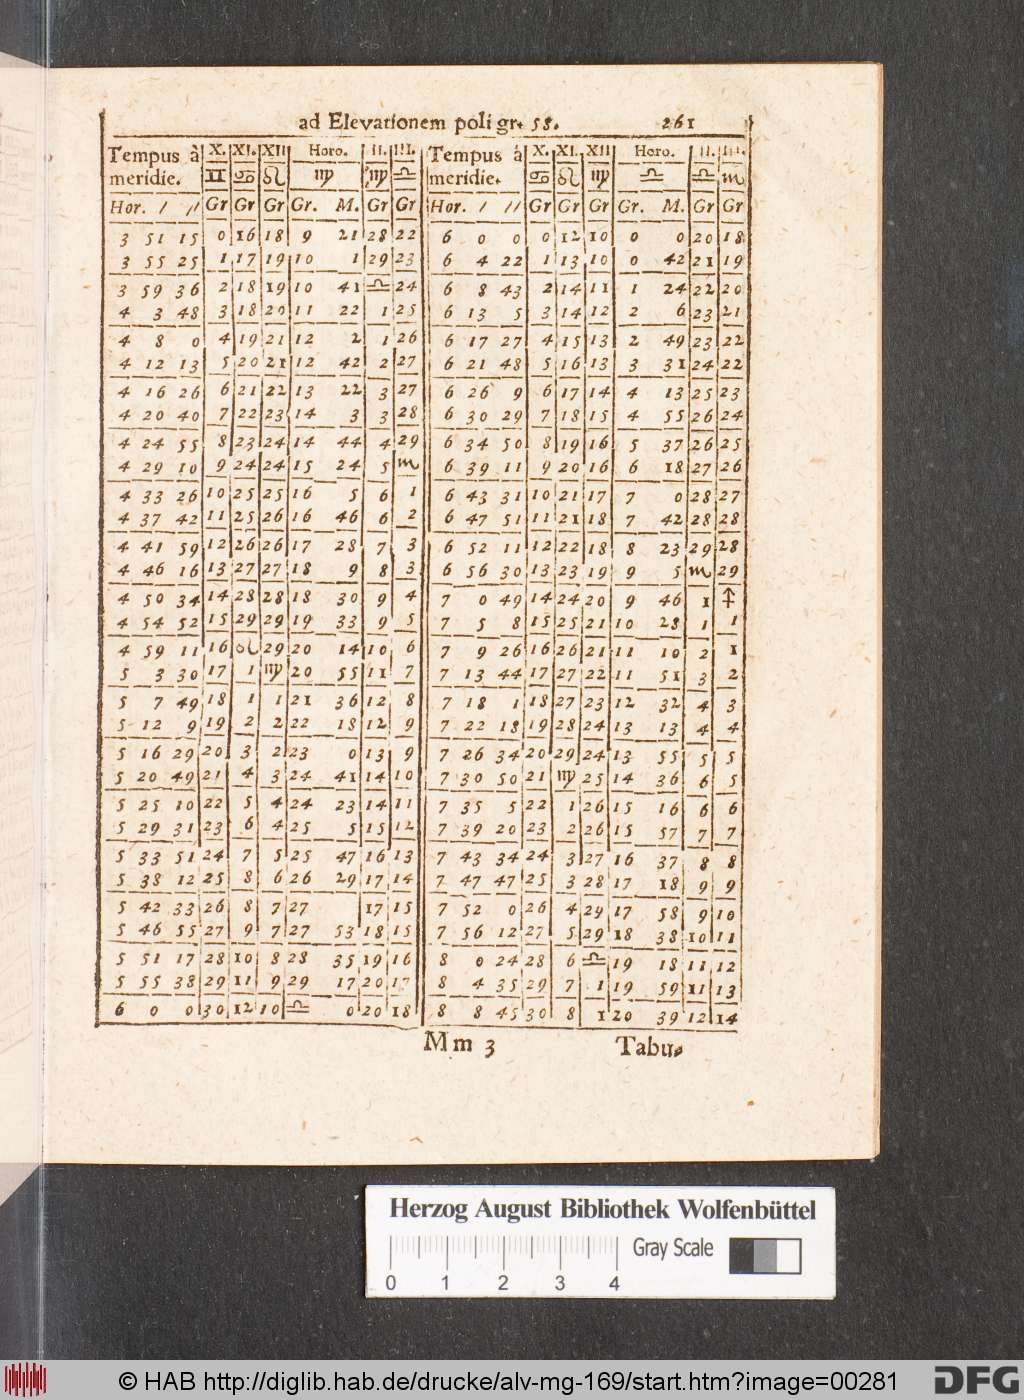 ad Elevationem poli gr. 58. 261
Tempus à meridie. X. XI. XII Horo. II. III. Tempus à meridie. X. XI. XII Horo. II. III.
♊ ♋ ♌ ♍ ♍ ♎ ♋ ♌ ♍ ♎ ♎ ♏
Hor. / // Gr Gr Gr Gr. M. Gr Gr Hor. / // Gr Gr Gr Gr. M. Gr Gr
3 51 15 0 16 18 9 21 28 22 6 0 0 0 12 10 0 0 20 18
3 55 25 1 17 19 10 1 29 23 6 4 22 1 13 10 0 42 21 19
3 59 36 2 18 19 10 41 ♎ 24 6 8 43 2 14 11 1 24 22 20
4 3 48 3 18 20 11 22 1 25 6 13 5 3 14 12 2 6 23 21
4 8 0 4 19 21 12 2 1 26 6 17 27 4 15 13 2 49 23 22
4 12 13 5 20 21 12 42 2 27 6 21 48 5 16 13 3 31 24 22
4 16 26 6 21 22 13 22 3 27 6 26 9 6 17 14 4 13 25 23
4 20 40 7 22 23 14 3 3 28 6 30 29 7 18 15 4 55 26 24
4 24 55 8 23 24 14 44 4 29 6 34 50 8 19 16 5 37 26 25
4 29 10 9 24 24 15 24 5 ♏ 6 39 11 9 20 16 6 18 27 26
4 33 26 10 25 25 16 5 6 1 6 43 31 10 21 17 7 0 28 27
4 37 42 11 25 26 16 46 6 2 6 47 51 11 21 18 7 42 28 28
4 41 59 12 26 26 17 28 7 3 6 52 11 12 22 18 8 23 29 28
4 46 16 13 27 27 18 9 8 3 6 56 30 13 23 19 9 5 ♏ 29
4 50 34 14 28 28 18 30 9 4 7 0 49 14 24 20 9 46 1 ♐
4 54 52 15 29 29 19 33 9 5 7 5 8 15 25 21 10 28 1 1
4 59 11 16 ♌ 29 20 14 10 6 7 9 26 16 26 21 11 10 2 1
5 3 30 17 1 ♍ 20 55 11 7 7 13 44 17 27 22 11 51 3 2
5 7 49 18 1 1 21 36 12 8 7 18 1 18 27 23 12 32 4 3
5 12 9 19 2 2 22 18 12 9 7 22 18 19 28 24 13 13 4 4
5 16 29 20 3 2 23 0 13 9 7 26 34 20 29 24 13 55 5 5
5 20 49 21 4 3 24 41 14 10 7 30 50 21 ♍ 25 14 36 6 5
5 25 10 22 5 4 24 23 14 11 7 35 5 22 1 26 15 16 6 6
5 29 31 23 6 4 25 5 15 12 7 39 20 23 2 26 15 57 7 7
5 33 51 24 7 5 25 47 16 13 7 43 34 24 3 27 16 37 8 8
5 38 12 25 8 6 26 29 17 14 7 47 47 25 3 28 17 18 9 9
5 42 33 26 8 7 27 17 15 7 52 0 26 4 29 17 58 9 10
5 46 55 27 9 7 27 53 18 15 7 56 12 27 5 29 18 38 10 11
5 51 17 28 10 8 28 35 19 16 8 0 24 28 6 ♎ 19 18 11 12
5 55 38 29 11 9 29 17 20 17 8 4 35 29 7 1 19 59 11 13
6 0 0 30 12 10 ♎ 0 20 18 8 8 45 30 8 1 20 39 12 14
Mm 3 Tabu-
Herzog August Bibliothek Wolfenbüttel
Gray Scale
0 1 2 3 4
© HAB http://diglib.hab.de/drucke/alv-mg-169/start.htm?image=00281
DFG